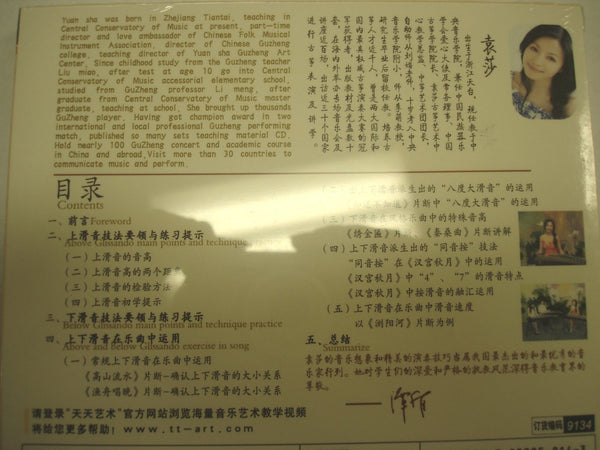 Yuan sha was born in Zhejiang Tiantai, teaching in
Central Conservatory of Music at present, part-time
director and love ambassador of Chinese Folk Musical
Instrument Association, director of Chinese Guzheng
college, teaching director of Yuan sha Guzheng Art
Center. Since childhood study from the Guzheng teacher
Liu miao, after test at age 10 go into Central
Conservatory of Music accessorial elementary school,
studied from GuZheng professor Li meng, after
graduate from Central Conservatory of Music master
graduate, teaching at school. She brought up thousands
GuZheng player. Having got champion award in two
international and local professional Guzheng performing
match, published so many sets teaching material CD.
Hold nearly 100 GuZheng concert and academic course
in China and abroad.Visit more than 30 countries to
communicate music and perform.
袁莎
出生于浙江天台，现任教于中
央音乐学院，兼任中国民族器乐
学会爱心大使及常务理事、中国
古筝学院院长、袁莎古筝艺术中
心教学总监、中筝艺术团团长，
自幼师从刘妙老师，十岁考入中央
音乐学院附小，师从李萌教授，
研究生毕业后留校任教。培养古
筝人才近千人，曾是两大国际和
国内最具权威古筝演奏大赛的冠
军获得者，出版教材音光盘数十
套，在海内外举办百场音乐会及
讲座近百场，出访近三十个国家
进行古筝表演及讲学。
目录
Contents
一、前言Foreword
二、上滑音技法要领与练习提示
Above Glissando main points and technique practice
（一）上滑音的音高
（二）上滑音高的两个距离
（三）上滑音的检验方法
（四）上滑音初学提示
三、下滑音技法要领与练习提示
Below Glissando main points and technique practice
四、上下滑音在乐曲中运用
Above and below Glissando exercise in song
（一）常规上下滑音在乐曲中运用
《高山流水》片断-确认上下滑音的大小关系
《渔舟唱晚》片断-确认上下滑音的大小关系
（二）由上下滑音派生出的“八度大滑音”的运用
中“八度大滑音”的运用
（三）下滑音在风格乐曲中的特殊音高
《绣金匾》片断、《秦桑曲》片断讲解
（四）上下滑音派生出的“同音按”技法
“同音按”在《汉宫秋月》中的运用
《汉宫秋月》中“4”、“7”的滑音特点
《汉宫秋月》中按滑音的融汇运用
（五）上下滑音在乐曲中滑音速度
以《浏阳河》片断为例
五、总结
Summarize
袁莎的音乐想象和精美的演奏技巧当属我国最杰出的和最优秀的音
乐家行列。她对学生们的深爱和严格的执教风范深得音乐教育界的
尊敬。
请登录“天天艺术”官方网站浏览海量音乐艺术教学视频
将给您更多帮助！www.tt-art.com
订货编码 9134